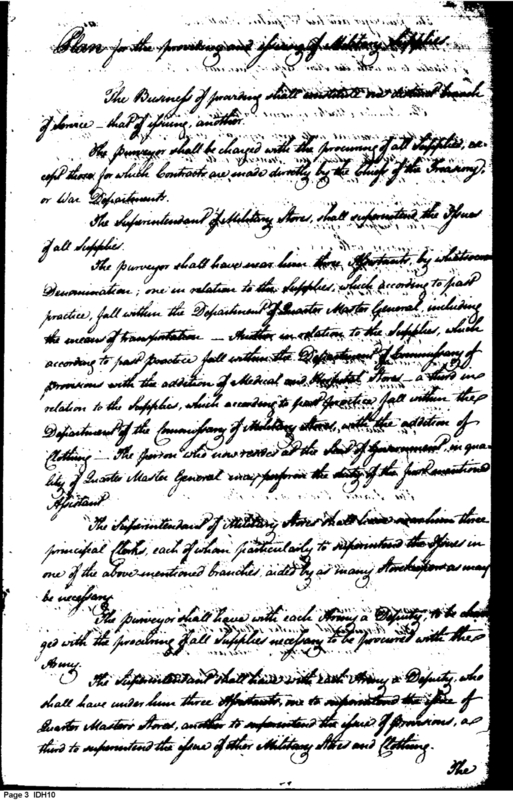 Plan for the providing and issuing of Military Supplies
The Business of providing shall constitute one distinct branch
of service that of issuing, another.
The purveyor shall be charged with the procuring of all Supplies, ex-
cept those for which Contracts are made directly by the Chiefs of the Treasury,
or War Departments.
The Superintendant of Military Stores, shall superintend the Issues
of all supplies.
The purveyor shall have near him three Assistants, by whatsoever
Denomination; one in relation to the Supplies, which according to past
practice, fall within the Department of Quarter Master General, including
the means of transportation — Another in relation to the Supplies, which
according to past practice fall within the Department of Commissary of
provisions with the addition of Medical and Hospital Stores — a third in
relation to the Supplies, which according to past practice fall within the
Department of the Commissary of Military Stores, with the addition of
Clothing — The person who now resides at the Seat of Government, in qua-
lity of Quarter Master General may perform the duty of the first mentioned
Assistant.
The Superintendant of Military Stores shall have near him three
principal Clerks, each of whom particularly to superintend the Issues in
one of the above mentioned branches, aided by as many Storekeepers as may
be necessary.
The purveyor shall have with each Army a Deputy, to be char-
ged with the procuring of all Supplies necessary to be procured with the
Army.
The Superintendant shall have with each Army a Deputy, who
shall have under him three Assistants, one to superintend the issue of
Quarter Masters Stores, another to superintend the issue of provisions, a
third to superintend the issue of other Military Stores and Clothing.
The
Page 3 IDH10